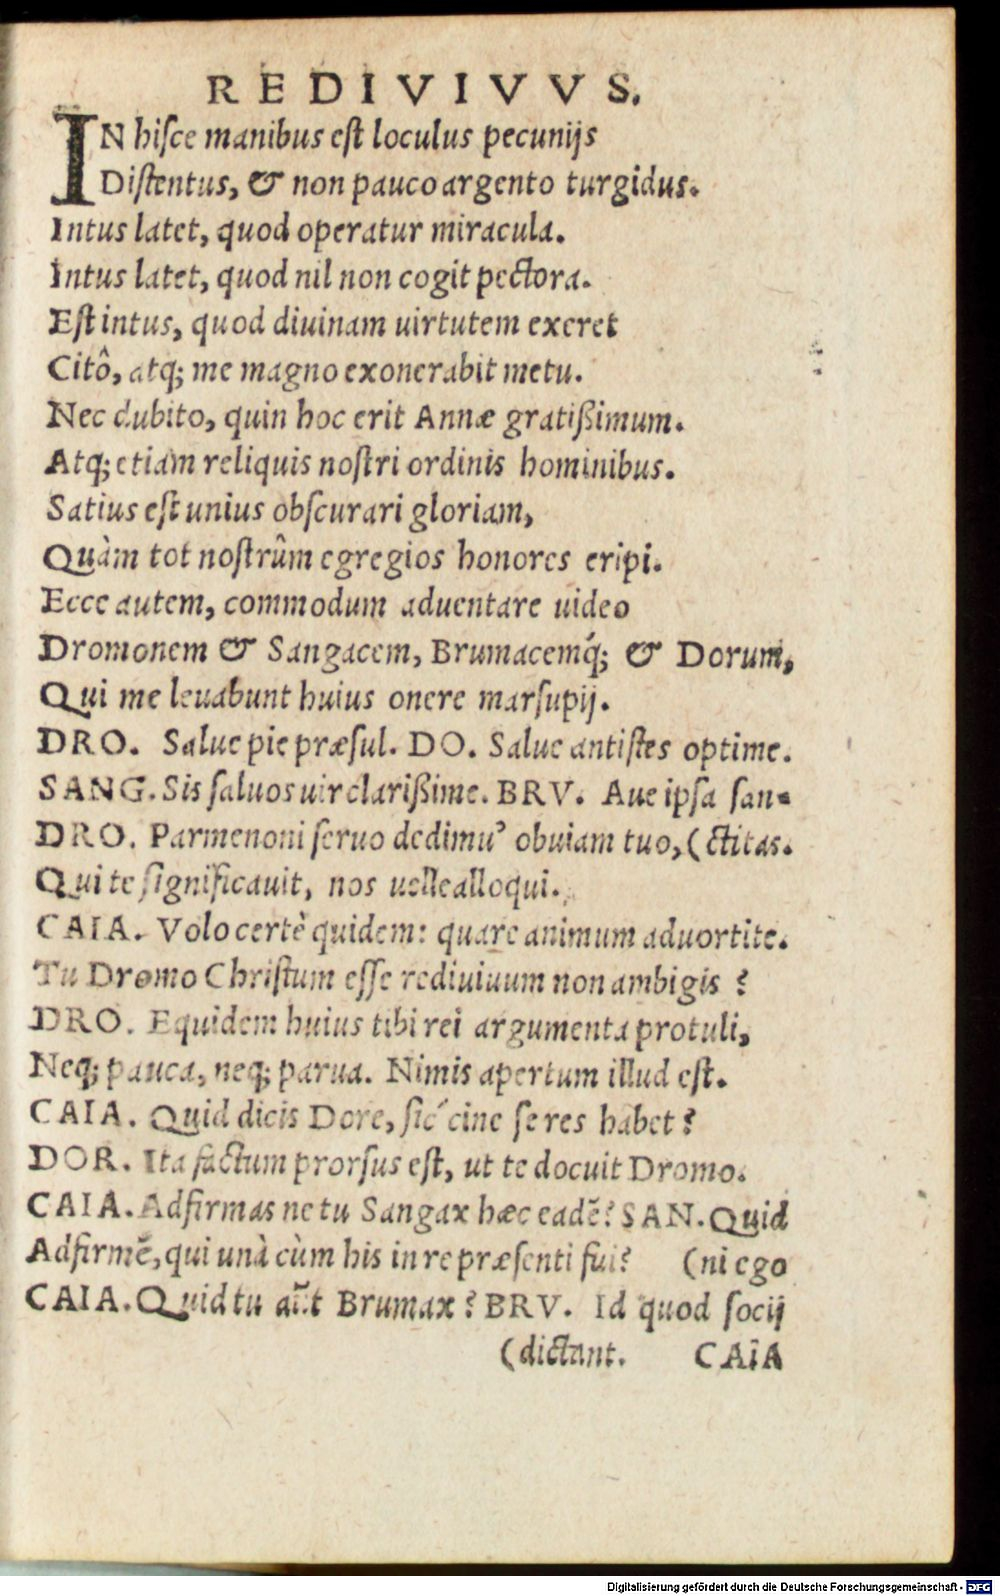 REDIVIVVS.
IN hisce manibus est loculus pecunijs
Distentus, & non pauco argento turgidus.
Intus latet, quod operatur miracula.
Intus latet, quod nil non cogit pectora.
Est intus, quod diuinam uirtutem exeret
Citô, atq; me magno exonerabit metu.
Nec dubito, quin hoc erit Annæ gratißimum.
Atq; etiam reliquis nostri ordinis hominibus.
Satius est unius obscurari gloriam,
Quàm tot nostrûm egregios honores eripi.
Ecce autem, commodum aduentare uideo
Dromonem & Sangacem, Brumacemq́; & Dorum,
Qui me leuabunt huius onere marsupij.
DRO. Salue pie præsul. DO. Salue antistes optime.
SANG. Sis saluos uir clarißime. BRV. Aue ipsa san-
DRO. Parmenoni seruo dedimu' obuiam tuo, (ctitas.
Qui te significauit, nos uelle alloqui.
CAIA. Volo certè quidem: quare animum aduortite.
Tu Dromo Christum esse rediuiuum non ambigis ?
DRO. Equidem huius tibi rei argumenta protuli,
Neq; pauca, neq; parua. Nimis apertum illud est.
CAIA. Quid dicis Dore, sic´cine se res habet ?
DOR. Ita factum prorsus est, ut te docuit Dromo.
CAIA. Adfirmas ne tu Sangax hæc eadē? SAN. Quid
Adfirmē, qui unà cùm his in re præsenti fui? (ni ego
CAIA. Quid tu aūt Brumax ? BRV. Id quod socij
(dictant. CAIA
Digitalisierung gefördert durch die Deutsche Forschungsgemeinschaft - DFG